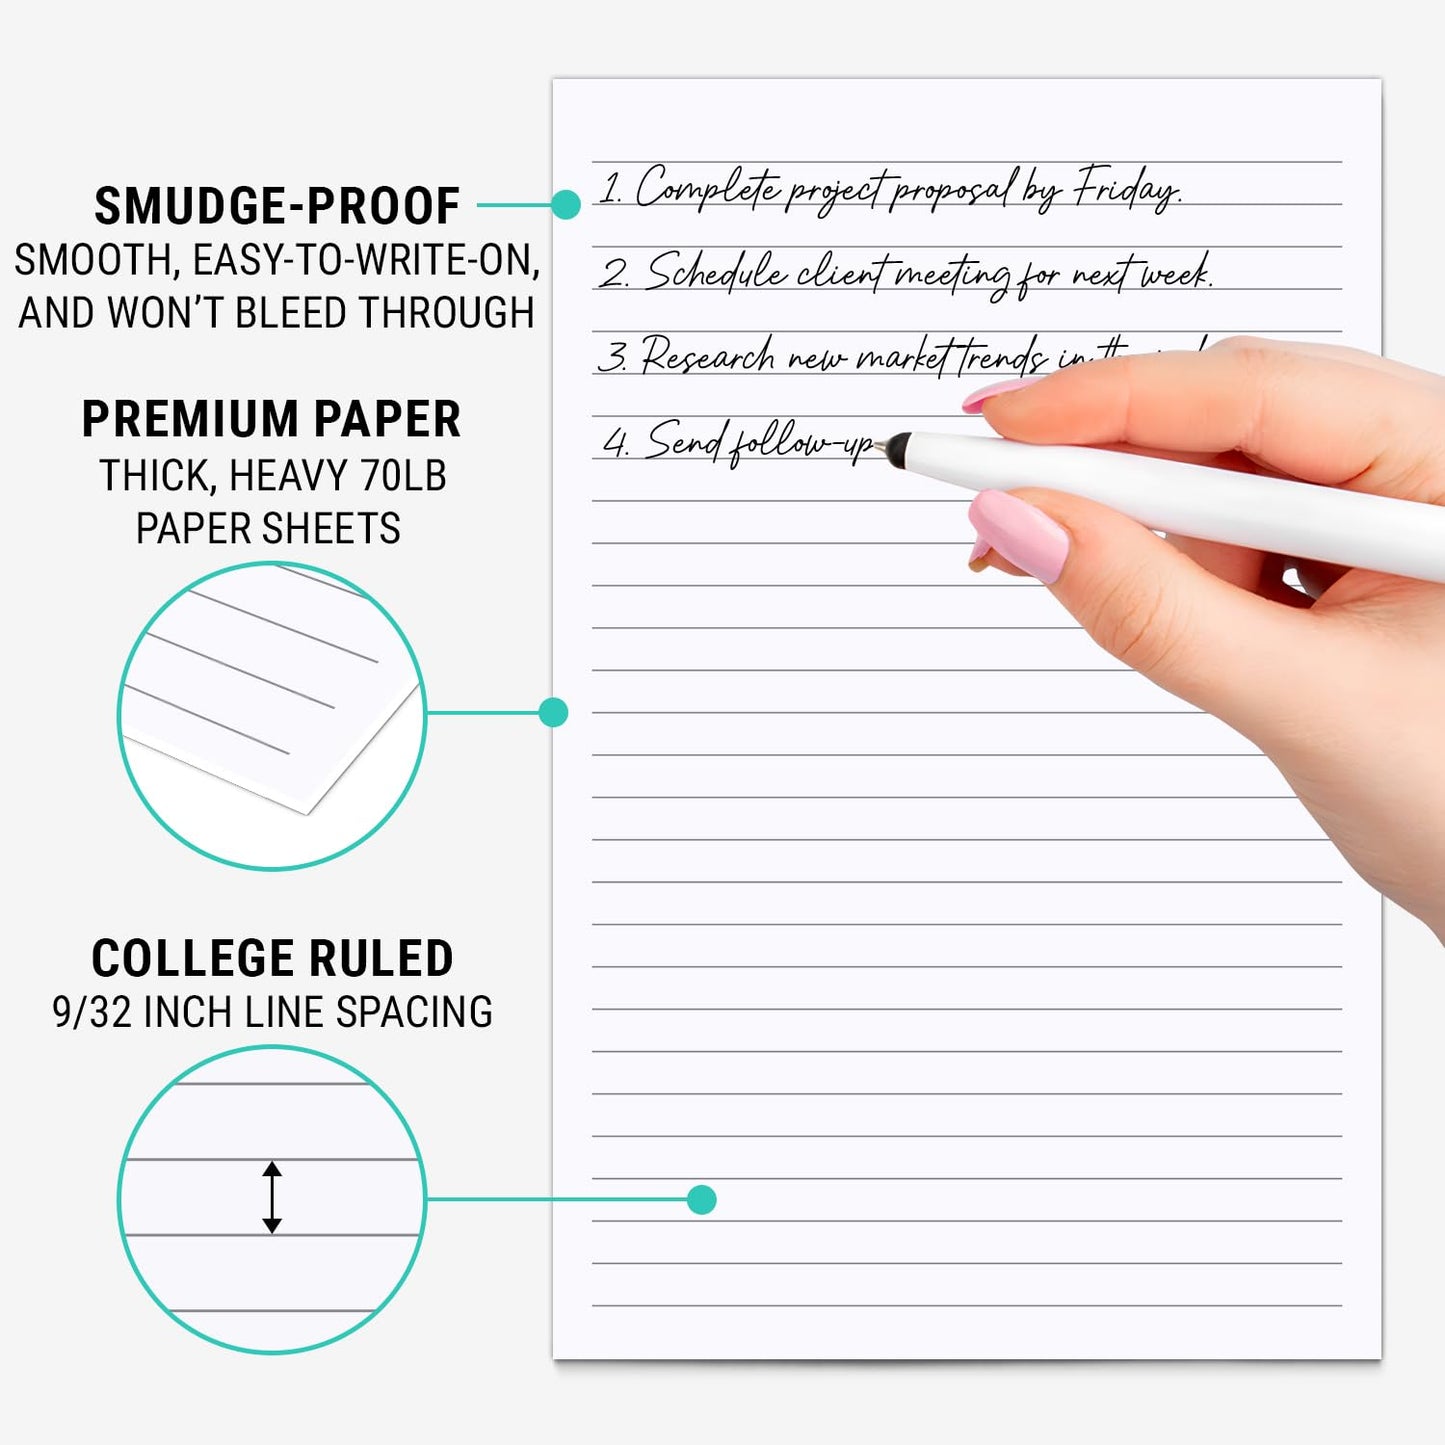 SMUDGE-PROOF
SMOOTH, EASY-TO-WRITE-ON,
AND WON'T BLEED THROUGH
PREMIUM PAPER
THICK, HEAVY 70LB
PAPER SHEETS
COLLEGE RULED
9/32 INCH LINE SPACING
1. Complete project proposal by Friday.
2. Schedule client meeting for next week.
3. Research new market trends in
4. Send follow-up